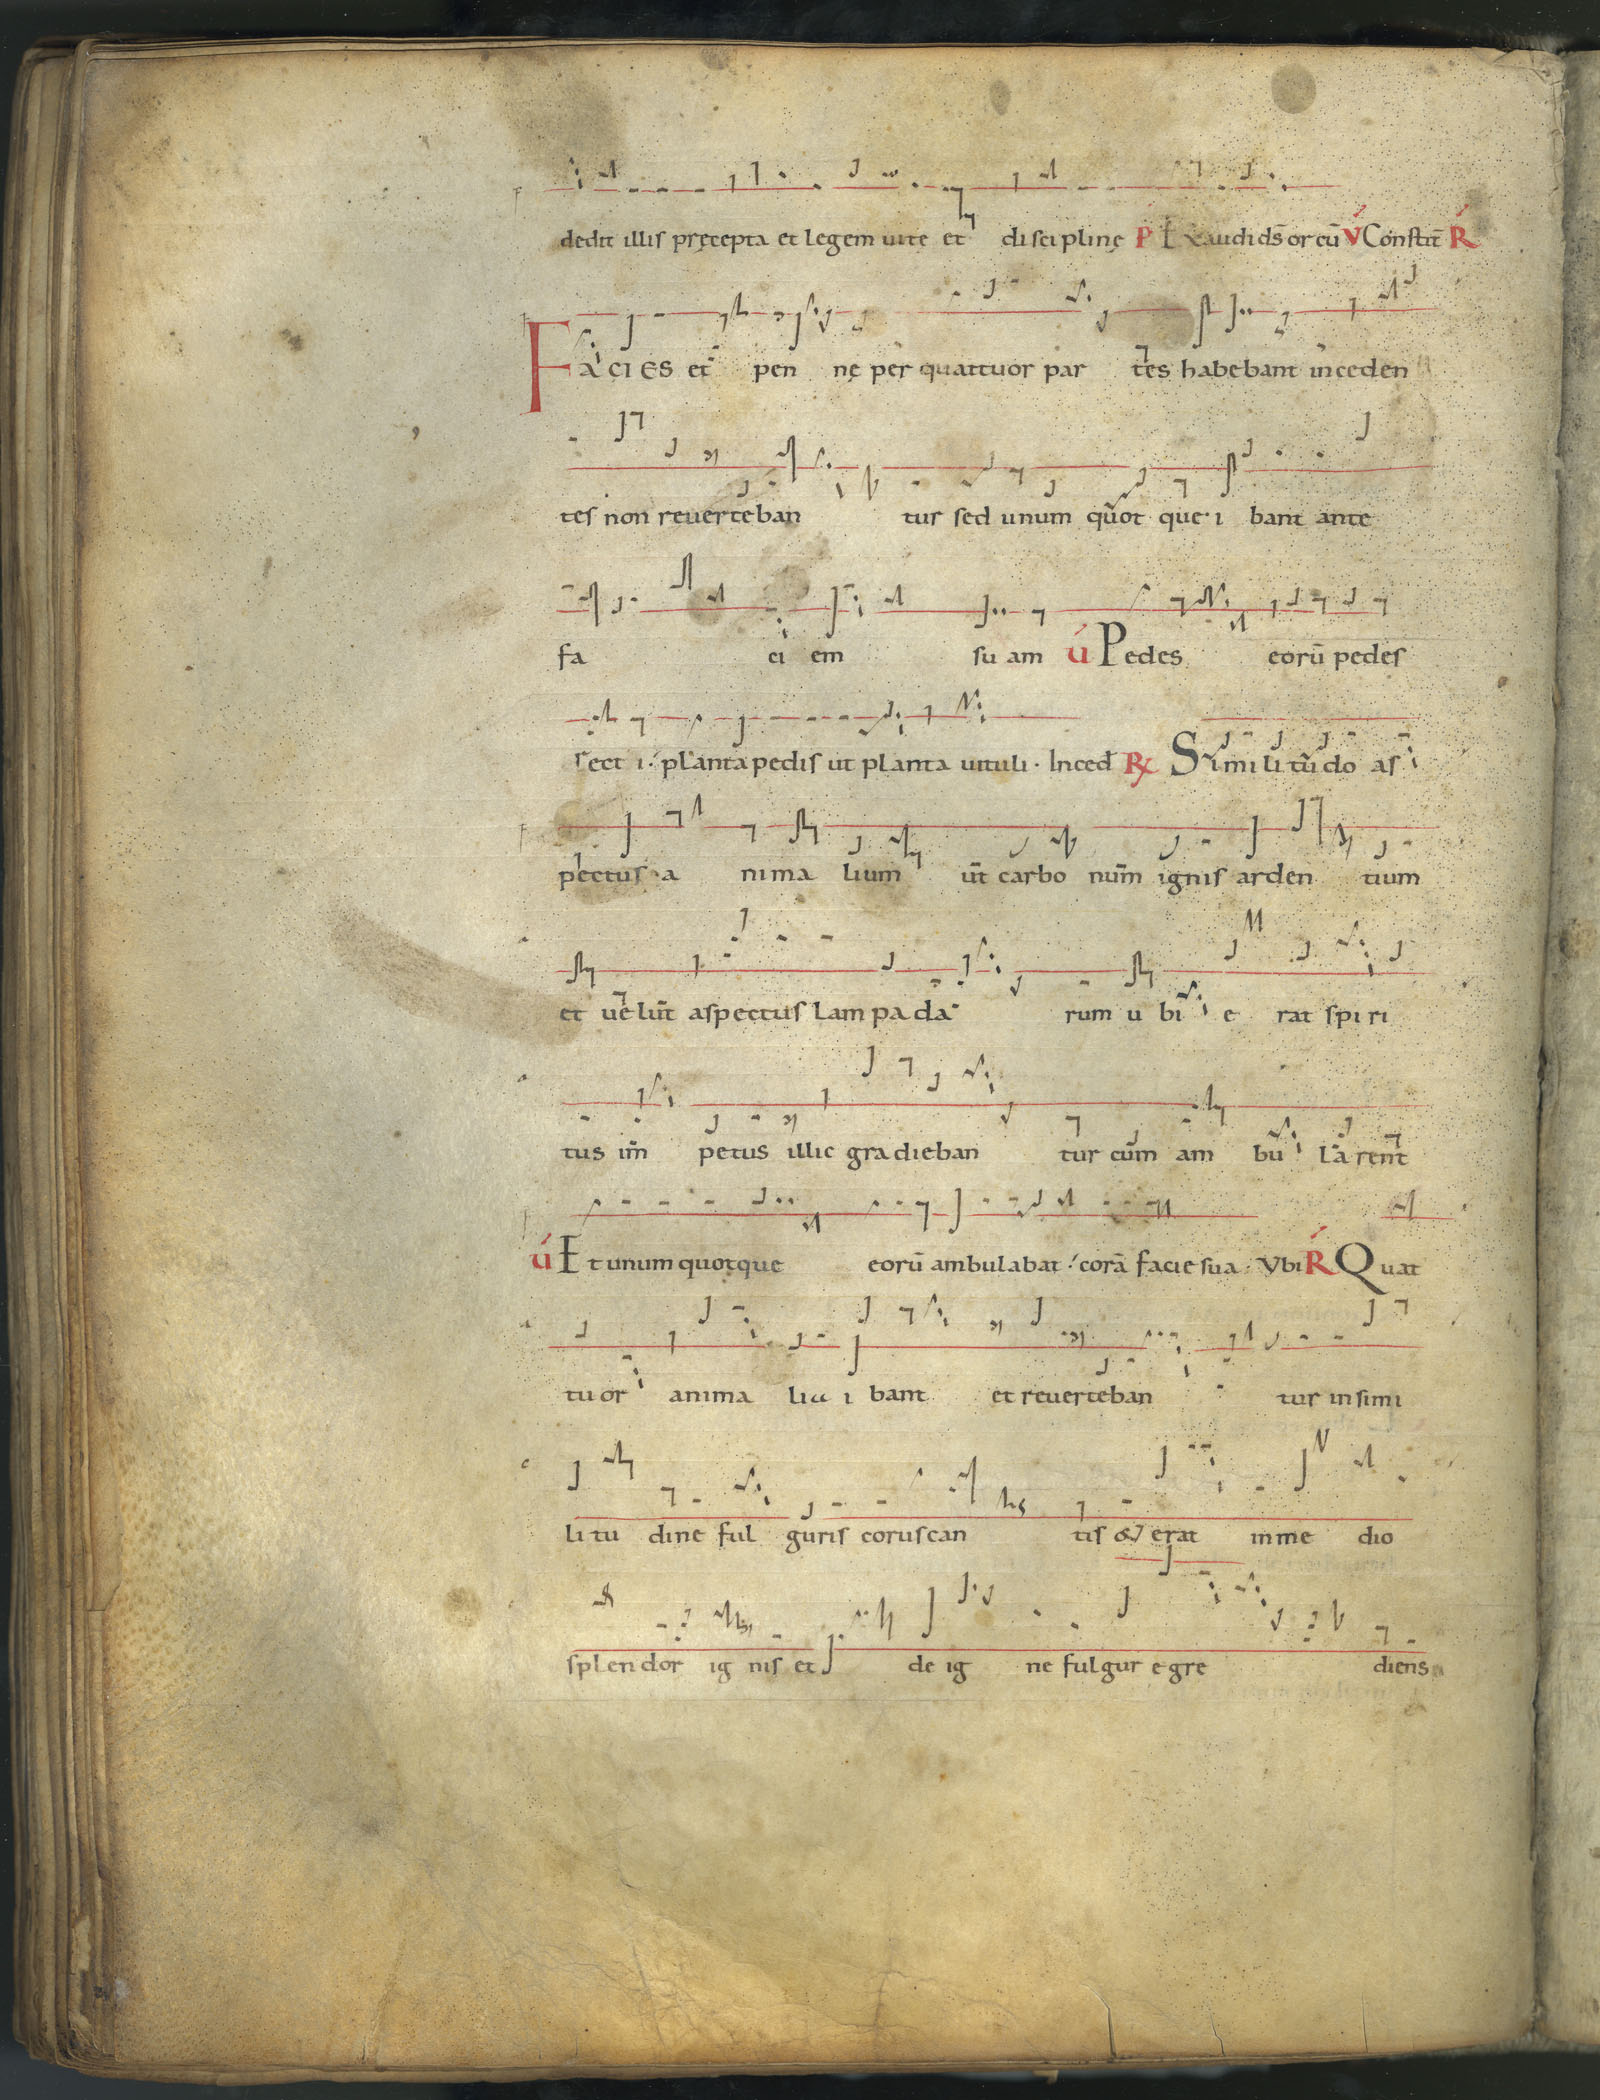 dedit illis pręcepta et legem uite et disciplinę P Exaudi ds̄ or eū V Constit̄ R
Facies et pennę per quattuor partes habebant inceden
tes non reuertebantur sed unum quot que · ibant ante
faciem suam ú Pedes eorū pedes
recti · planta pedis ut planta uituli · Inced R Similitudo as
pectus · animalium ut carbonum ignis ardentium
et uelut aspectus lampadarum ubi erat spiri
tus im petus illic gradiebantur cum ambularent
ú Et unum quotque eorū ambulabat · corā facie sua · Vbi R Quat
tuor animalia ibant et reuertebantur insimi
litudine fulguris coruscantis & erat inmedio
splendor ignis et de igne fulgur egrediens